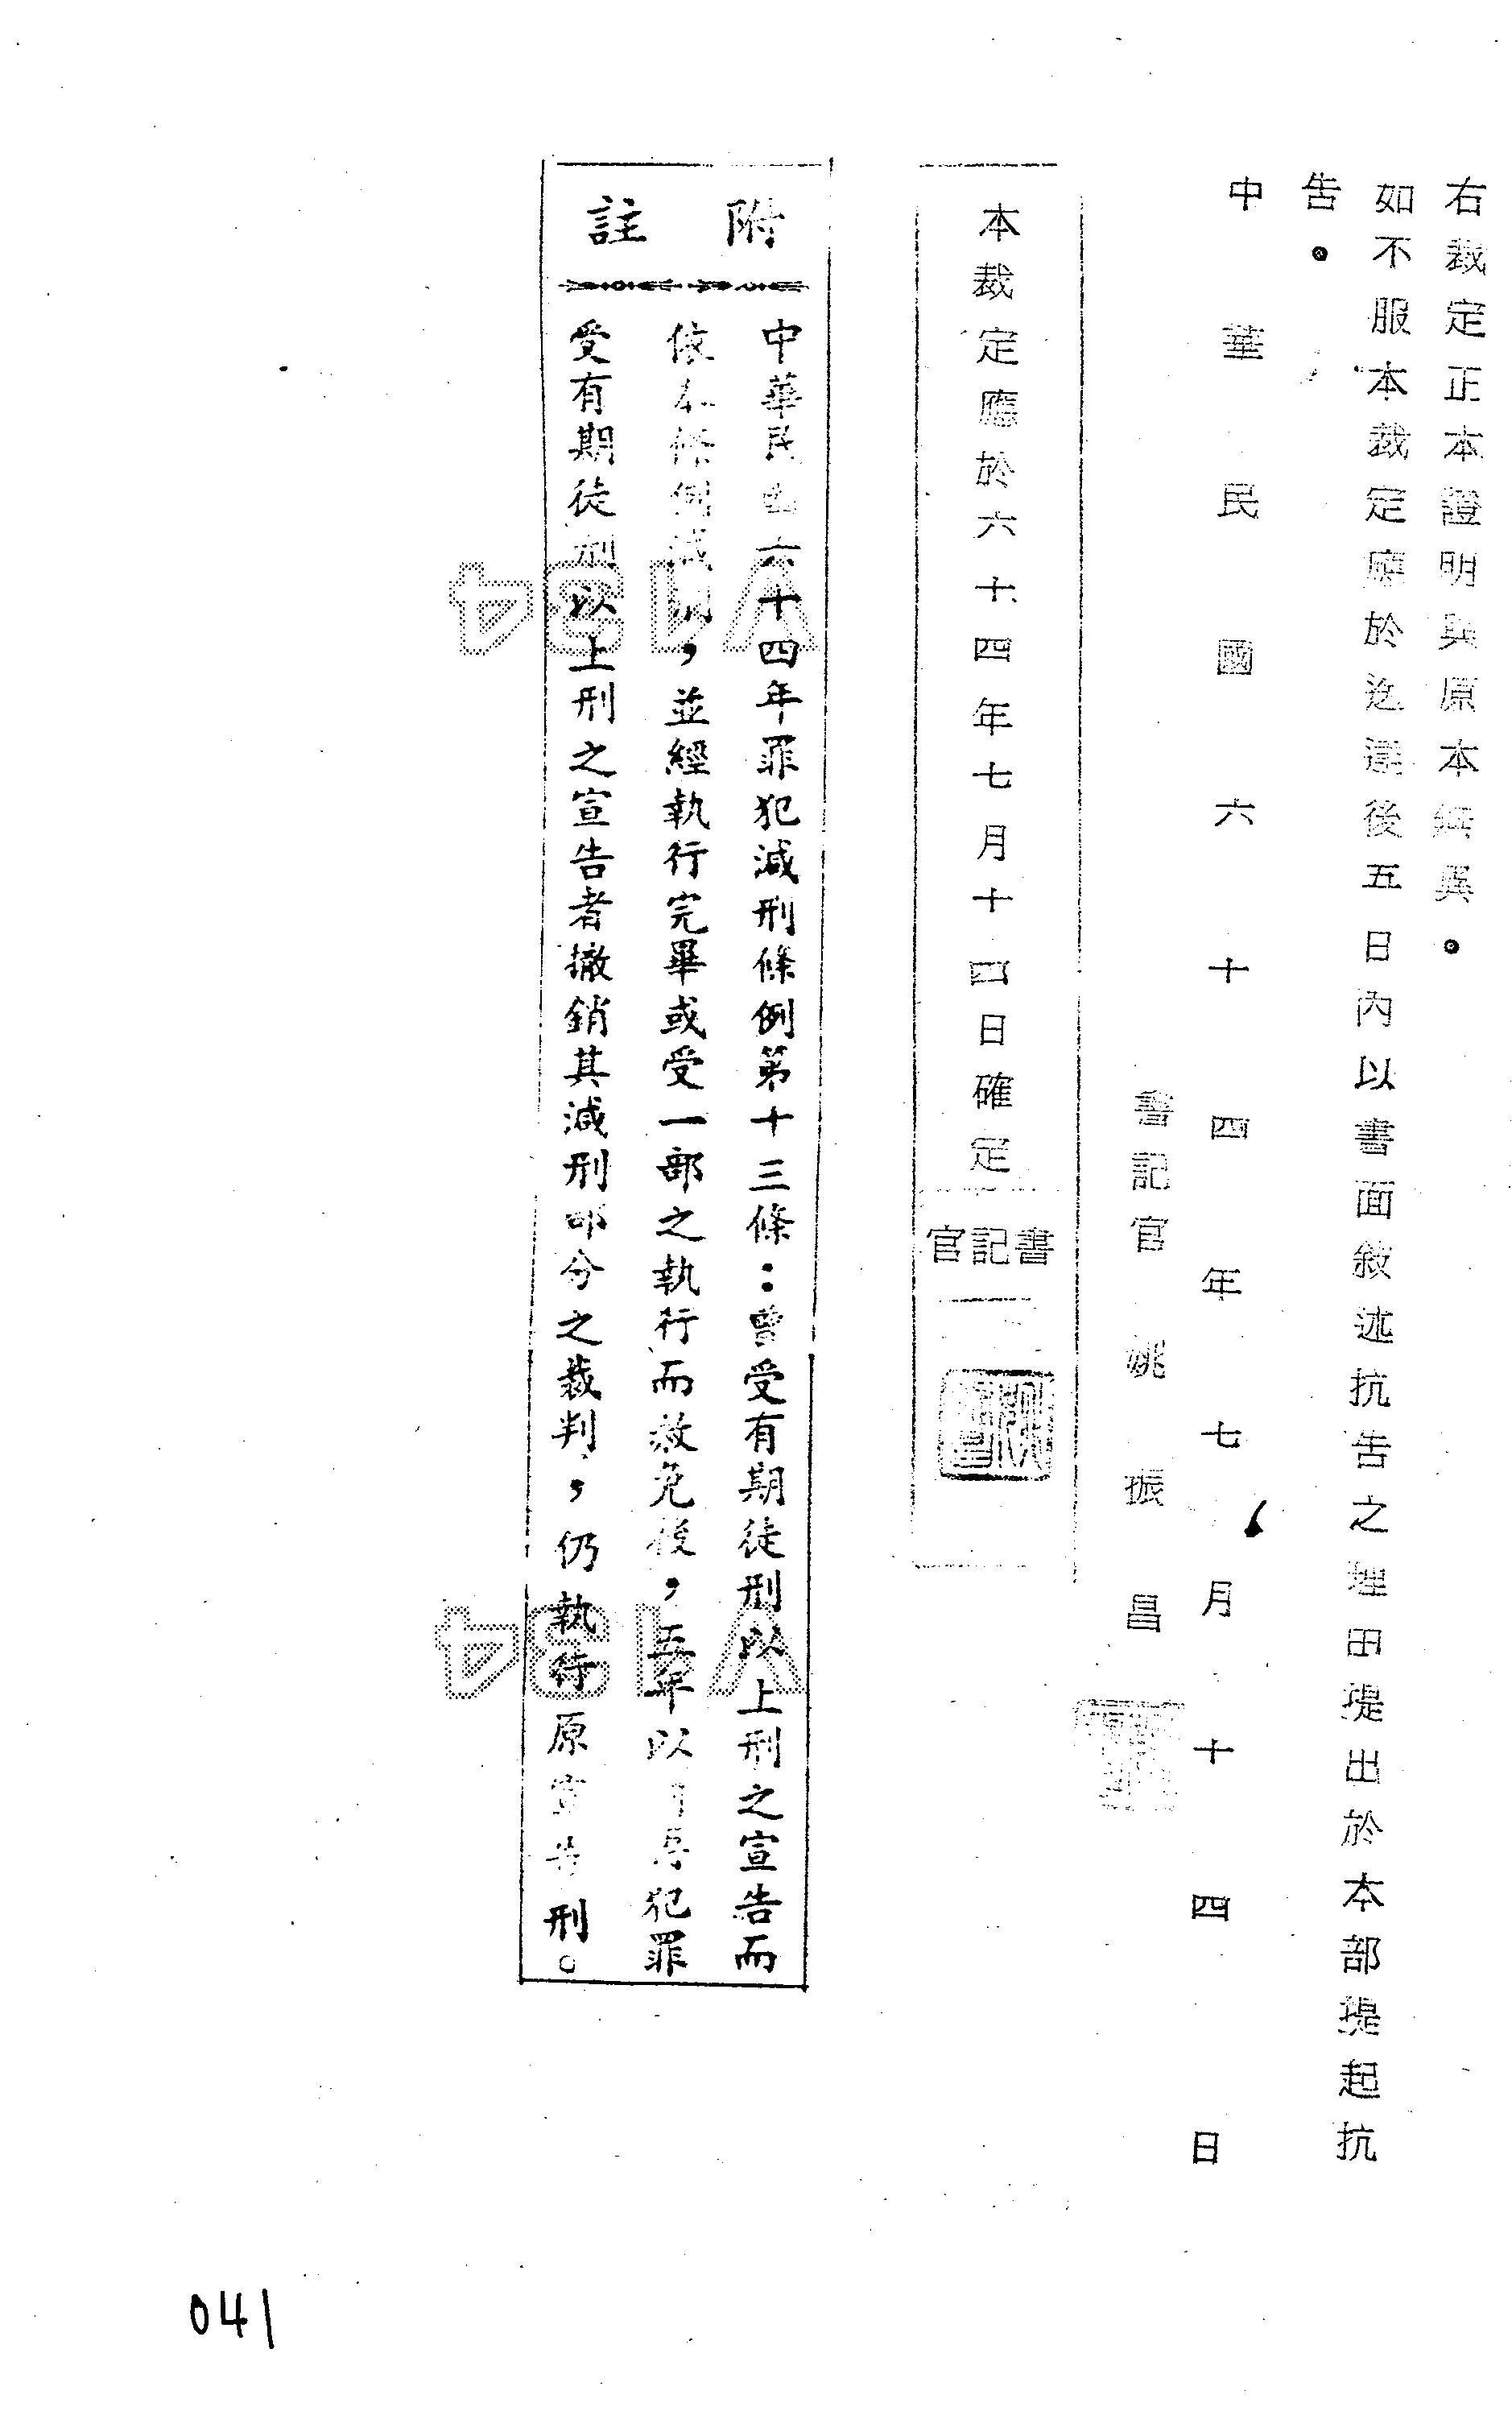 右裁定正本證明與原本無異。
如不服本裁定應於送達後五日內以書面敘述抗告之理由提出於本部提起抗
告。
中華民國六十四年七月十四日
書記官 姚振昌
本裁定應於六十四年七月十四日確定
書記官
附註
中華民國六十四年罪犯減刑條例第十三條：曾受有期徒刑以上刑之宣告而
依本條例減刑，並經執行完畢或受一部之執行而赦免後，五年以內再犯罪
受有期徒刑以上刑之宣告者撤銷其減刑部分之裁判，仍執行原宣告刑。
V134
V134
041